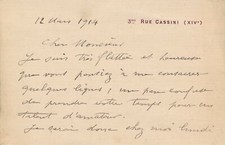 12 Mars 1914
3ter RUE CASSINI (XIVe)
Cher Monsieur
Je suis très flattée et heureuse
que vous pensiez à me consacrer
quelques lignes; un peu confuse
de prendre votre temps pour un
talent d'amateur.
Je serai donc chez moi lundi